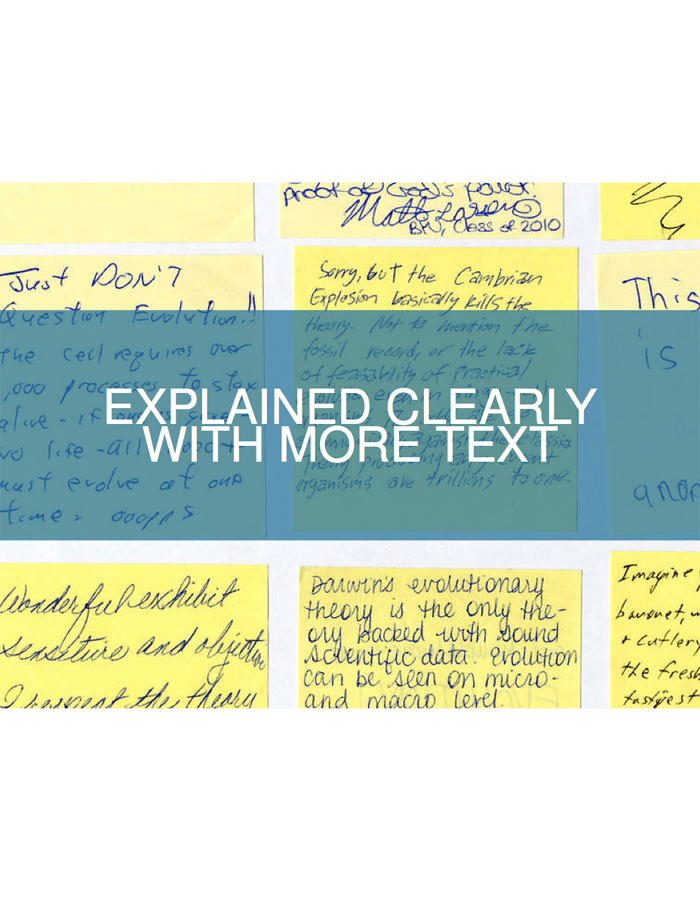 proof of God's power!
BYU, Class of 2010
Just DON'T
Question Evolution!!
the cell requires over
,000 processes to stay
alive - if
no life - all
must evolve at one
time = ooopps
Sorry, but the Cambrian
Explosion basically kills the
theory. Not to mention the
fossil record, or the lack
of feasability of practical
organisms are trillions to one.
This
is
EXPLAINED CLEARLY
WITH MORE TEXT
Wonderful exhibit
sensitive and objective
I respect the theory
Darwin's evolutionary
theory is the only the-
ory backed with sound
scientific data. Evolution
can be seen on micro-
and macro level.
Imagine
banquet, w
+ cutlery
the fresh
tastiest